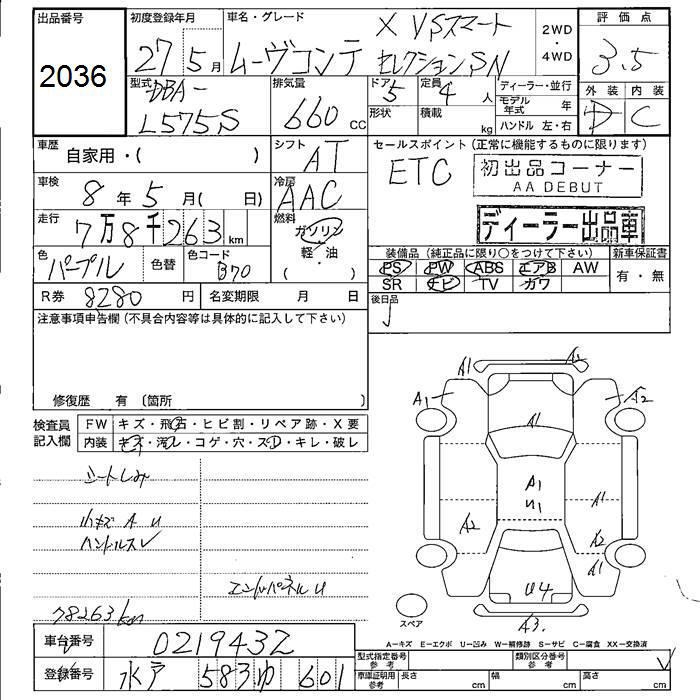 出品番号
2036
初度登録年月
27 5月
車名・グレード
ムーヴコンテ
X VSスマート
セレクションSN
2WD
・
4WD
評価点
3.5
外装 内装
D C
型式
DBA-
L575S
排気量
660 cc
ドア 5
形状
定員 4 人
積載 kg
ディーラー・並行
モデル年式 年
ハンドル 左・右
車歴
自家用・( )
シフト
AT
セールスポイント (正常に機能するものに限ります)
ETC
初出品コーナー
AA DEBUT
ディーラー出品車
車検
8年 5月( 日)
冷房
AAC
走行
7万8千263km
燃料
ガソリン
軽・油
( )
色
パープル
色替
色コード
B70
装備品 (純正品に限り○をつけて下さい)
PS PW ABS エアB AW
SR ナビ TV カワ
新車保証書
有・無
R券 8280 円
名変期限 月 日
後日品
注意事項申告欄(不具合内容等は具体的に記入して下さい)
修復歴 有〔箇所 〕
検査員
記入欄
FW キズ・飛石・ヒビ割・リペア跡・X要
内装 キズ・汚レ・コゲ・穴・スレ・キレ・破レ
シートしみ
小キズ A U
ハンドルスレ
エンドパネルU
78263km
A1 A2
A1 A2
A1
A1
U1
A1
A2 A2
A1
U4
A3
スペア
A―キズ E―エクボ U―凹み W―補修跡 S―サビ C―腐食 XX―交換済
車台番号
0219432
登録番号
水戸 583 ゆ 601
型式指定番号
参考
類別区分番号
参考
車庫証明用
参考
長さ cm
幅 cm
高さ cm